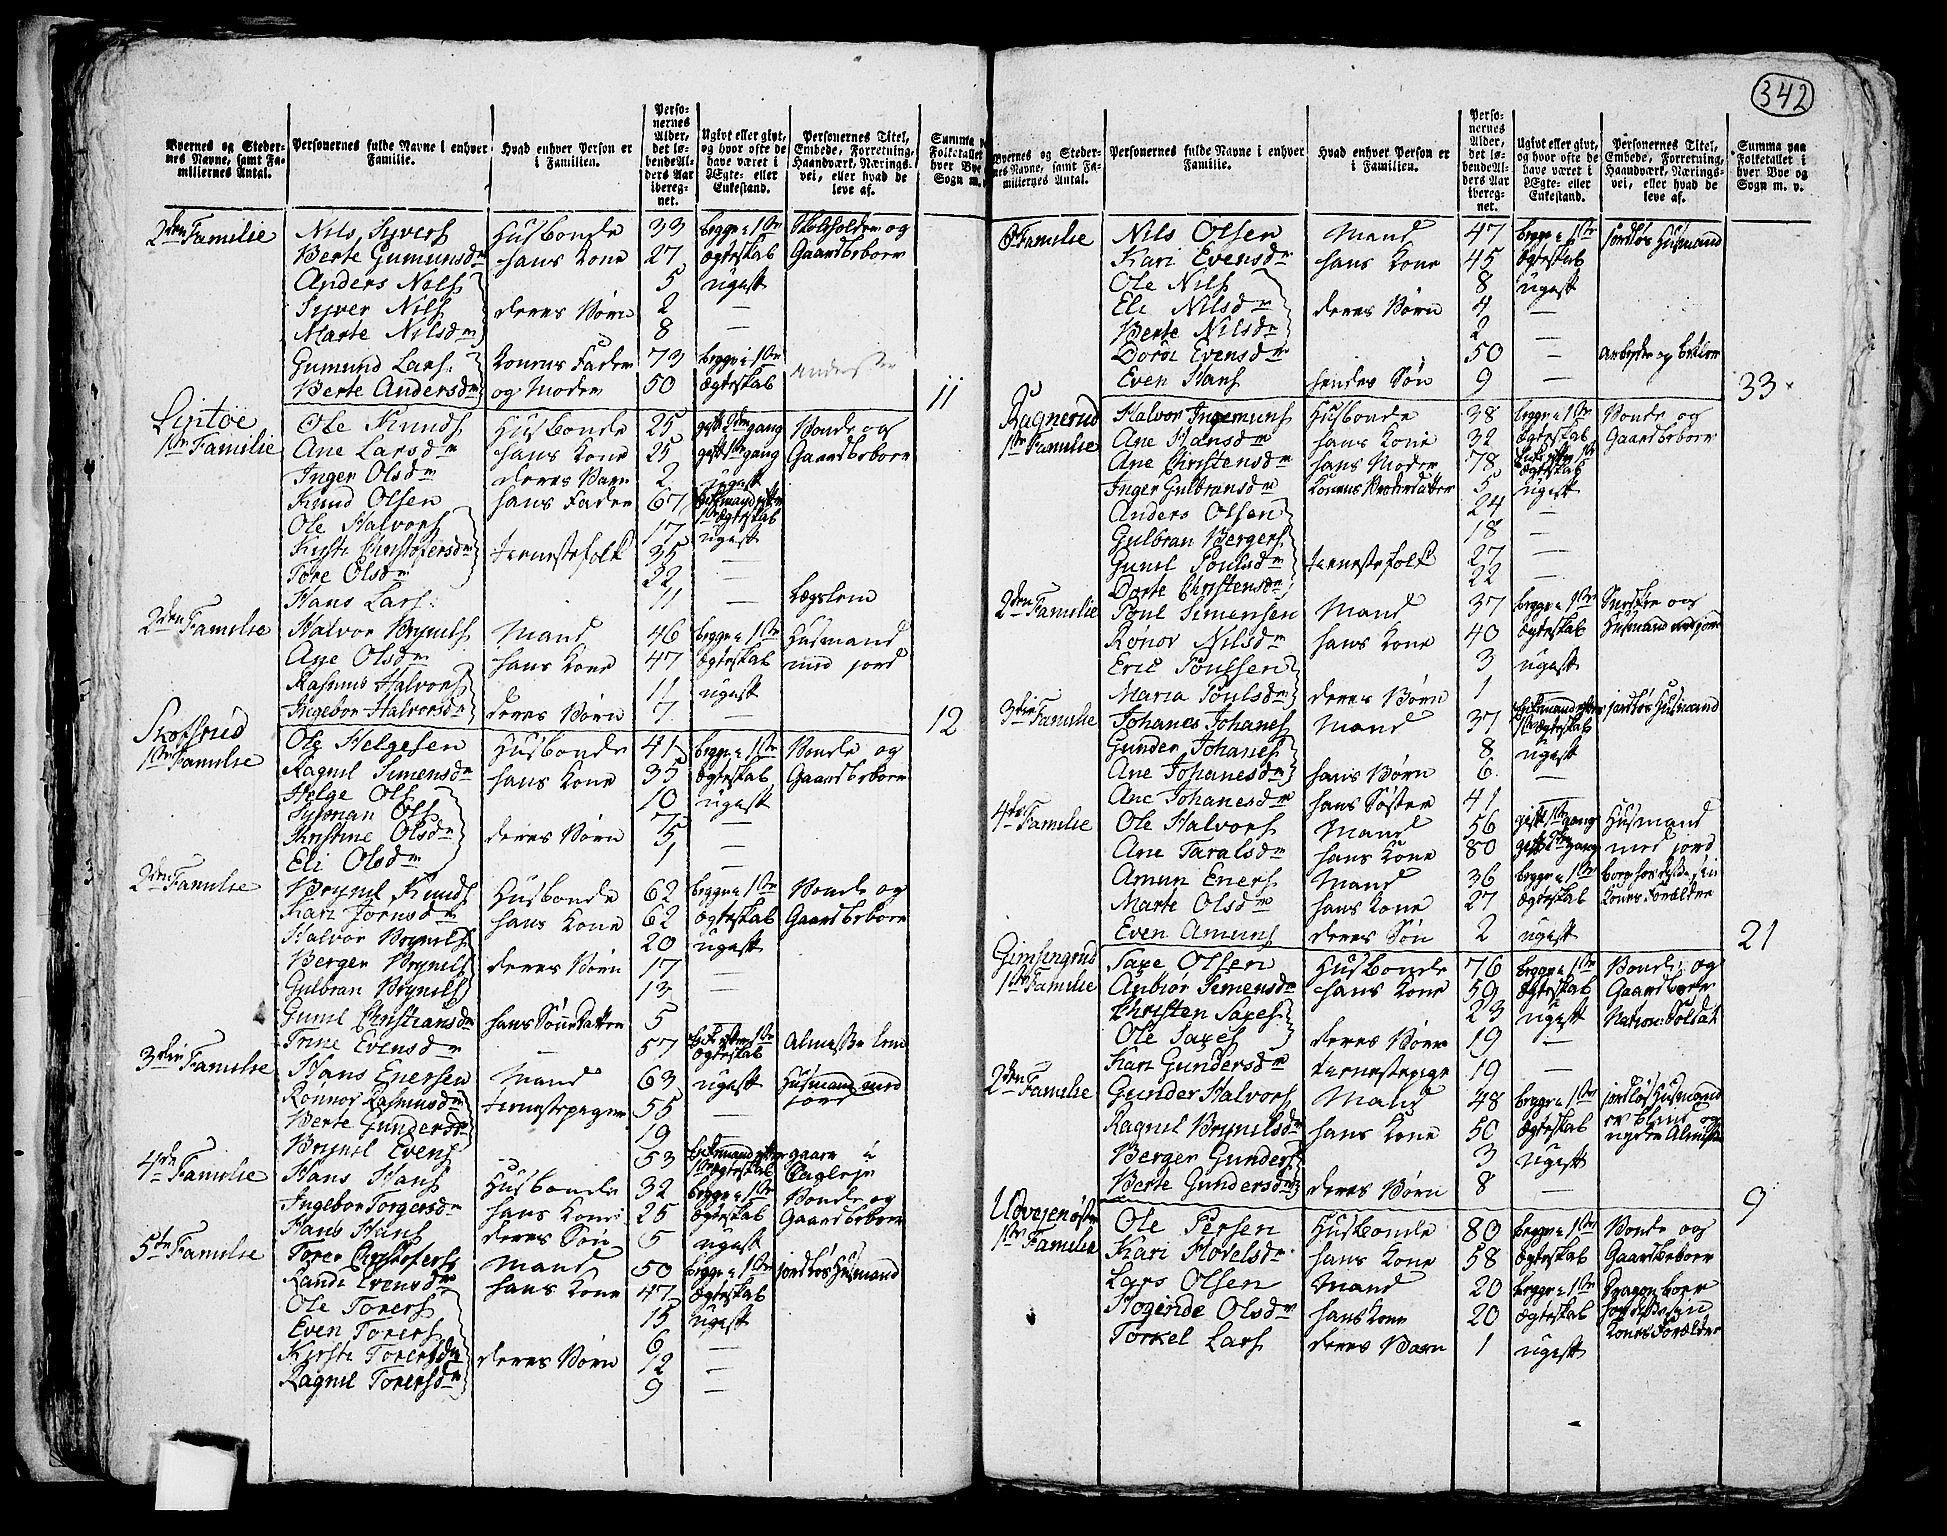 342
Byernes og Stedernes Navne, samt Familiernes Antal.
Personernes fulde Navne i enhver Familie.
Hvad enhver Person er i Familien.
Personernes Alder, det løbende Alders Aar iberegnet.
Ugivt eller givt, og hvor ofte de have været i Ægte- eller Enkestand.
Personernes Titel, Embede, Forretning, Haandværk, Næringsvei, eller hvad de leve af.
Summa Folketallet hver Bye Sogn m.
2den Familie Nils Syvers Husbonde 33 begge i 1ste Skoleholder og
Berte Gumunsd hans Kone 27 Ægteskab Gaardbeboer
Anders Nils 5 ugift
Syver Nils deres Børn 2 —
Marte Nilsd 8 —
Gumund Lars: Konens Fader 73 begge i 1ste
Berte Andersd og Moder 50 Ægteskab
11
Lintoe
1ste Familie Ole Knuds Husbonde 25 gift 2den gang Bonde og
Ane Larsd hans Kone 25 gift 1ste gang Gaardbeboer
Inger Olsd deres Barn 2 ugift
Knud Olsen hans Fader 67 Enkemand efter 1ste Ægteskab
Ole Halvors 17 ugift
Kirsti Christofersd Tienestefolk 35 —
Tore Olsd 32 —
Hans Lars: 11 — Lægslem
2den Familie Halvor Brynils Mand 46 begge i 1ste Husmand
Ane Olsd hans Kone 47 Ægteskab med jord
Rasmus Halvors 11 ugift
Ingebor Halvorsd deres Børn 7 —
12
Skofsrud
1ste Familie Ole Helgesen Husbonde 41 begge i 1ste Bonde og
Ragnil Simensd hans Kone 35 Ægteskab Gaardbeboer
Helge Ols 10 ugift
Ols 7 —
Christine Olsd deres Børn 5 —
Eli Olsd 1 —
2den Familie Brynil Knuds Husbonde 62 begge i 1ste Bonde og
Kari Jornsd hans Kone 62 Ægteskab Gaardbeboer
Halvor Brynils 20 ugift
Berger Brynils deres Børn 17 —
Gulbran Brynils 13 —
Gunil Christiansd hans Sønedatter 5
Trine Evensd — 57 Enke efter 1ste Ægteskab Almisse lem
3die Familie Hans Enersen Mand 63 ugift Husmand med jord
Ronnov Rasmusd Tienestepiger 55 —
Berte Gundersd 19 —
Brynil Evens 53 Enkemand efter 1ste Ægteskab gaaer i
4de Familie Hans Hans Husbonde 32 begge i 1ste Bonde og
Ingebor Torgersd hans Kone 25 Ægteskab Gaardbeboer
Hans Hans deres Søn 5 ugift
5te Familie Torer Christofers Mand 50 begge i 1ste jordløs Husmand
Randi Evensd hans Kone 47 Ægteskab
Ole Torers 15 ugift
Even Torers 6 —
Kirsti Torersd deres Børn 12 —
Ragnil Torersd 9 —
Byernes og Stedernes Navne, samt Familiernes Antal.
Personernes fulde Navne i enhver Familie.
Hvad enhver Person er i Familien.
Personernes Alder, det løbende Alders Aar iberegnet.
Ugivt eller givt, og hvor ofte de have været i Ægte- eller Enkestand.
Personernes Titel, Embede, Forretning, Haandværk, Næringsvei, eller hvad de leve af.
Summa paa Folketallet i hver Bye og Sogn m. v.
6te Familie Nils Olsen Mand 47 begge i 1ste jordløs Husmand
Kari Evensd hans Kone 45 Ægteskab
Ole Nils 8 ugift
Eli Nilsd deres Børn 4 —
Berte Nilsd 2 —
Dorøi Evensd 50 —
Even Hans hendes Søn 9 —
33
Rugnerud
1ste Familie Halvor Ingemuns Husbonde 38 begge i 1ste Bonde og
Ane Hansd hans Kone 32 Ægteskab Gaardbeboer
Ane Christensd hans Moder 78 Enke efter 1ste Ægteskab
Inger Gulbransd Konens Broderdatter 5 ugift
Anders Olsen 24 —
Gulbran Bergers 18 —
Gunil Poulsd Tienestefolk 27 —
Dorte Christensd 22 —
2den Familie Poul Simensen Mand 37 begge i 1ste
Ronov Nilsd hans Kone 40 Ægteskab Husmand med jord
Eric Poulsen 3 ugift
Maria Poulsd deres Børn 1 —
3die Familie Johanes Johanes Mand 37 Enkemand efter 1ste Ægteskab jordløs Husmand
Gunder Johanes 8 ugift
Ane Johanesd hans Børn 6 —
Ane Johanesd hans Søster 41 —
4de Familie Ole Halvors Mand 56 gift 1ste gang Husmand
Ane Taralsd hans Kone 80 gift 2den gang med jord
Amun Eners Mand 36 begge i 1ste
Marte Olsd hans Kone 27 Ægteskab Konens Forældre
Even Amuns deres Søn 2 ugift
21
Gimsengrud
1ste Familie Saxe Olsen Husbonde 76 begge i 1ste Bonde og
Anbiør Simensd hans Kone 59 Ægteskab Gaardbeboer
Christen Saxes 23 ugift Nation: Soldat
Ole Saxes deres Børn 19 —
Kari Gundersd tienestepige 19 —
2den Familie Gunder Halvors Mand 48 begge i 1ste jordløs Husmand
Ragnil Brynilsd hans Kone 50 Ægteskab er blind og nyder Almisse
Berger Gunders 3 ugift
Berte Gundersd deres Børn 8 —
9
Udvejenøstre
1ste Familie Ole Persen Husbonde 80 begge i 1ste Bonde og
Kari Hovelsd hans Kone 58 Ægteskab Gaardbeboer
Lars Olsen Mand 20 begge i 1ste Dragon boer
Hogende Olsd hans Kone 20 Ægteskab hos disse sin Kones Forældre
Torkel Lars deres Barn 1 ugift